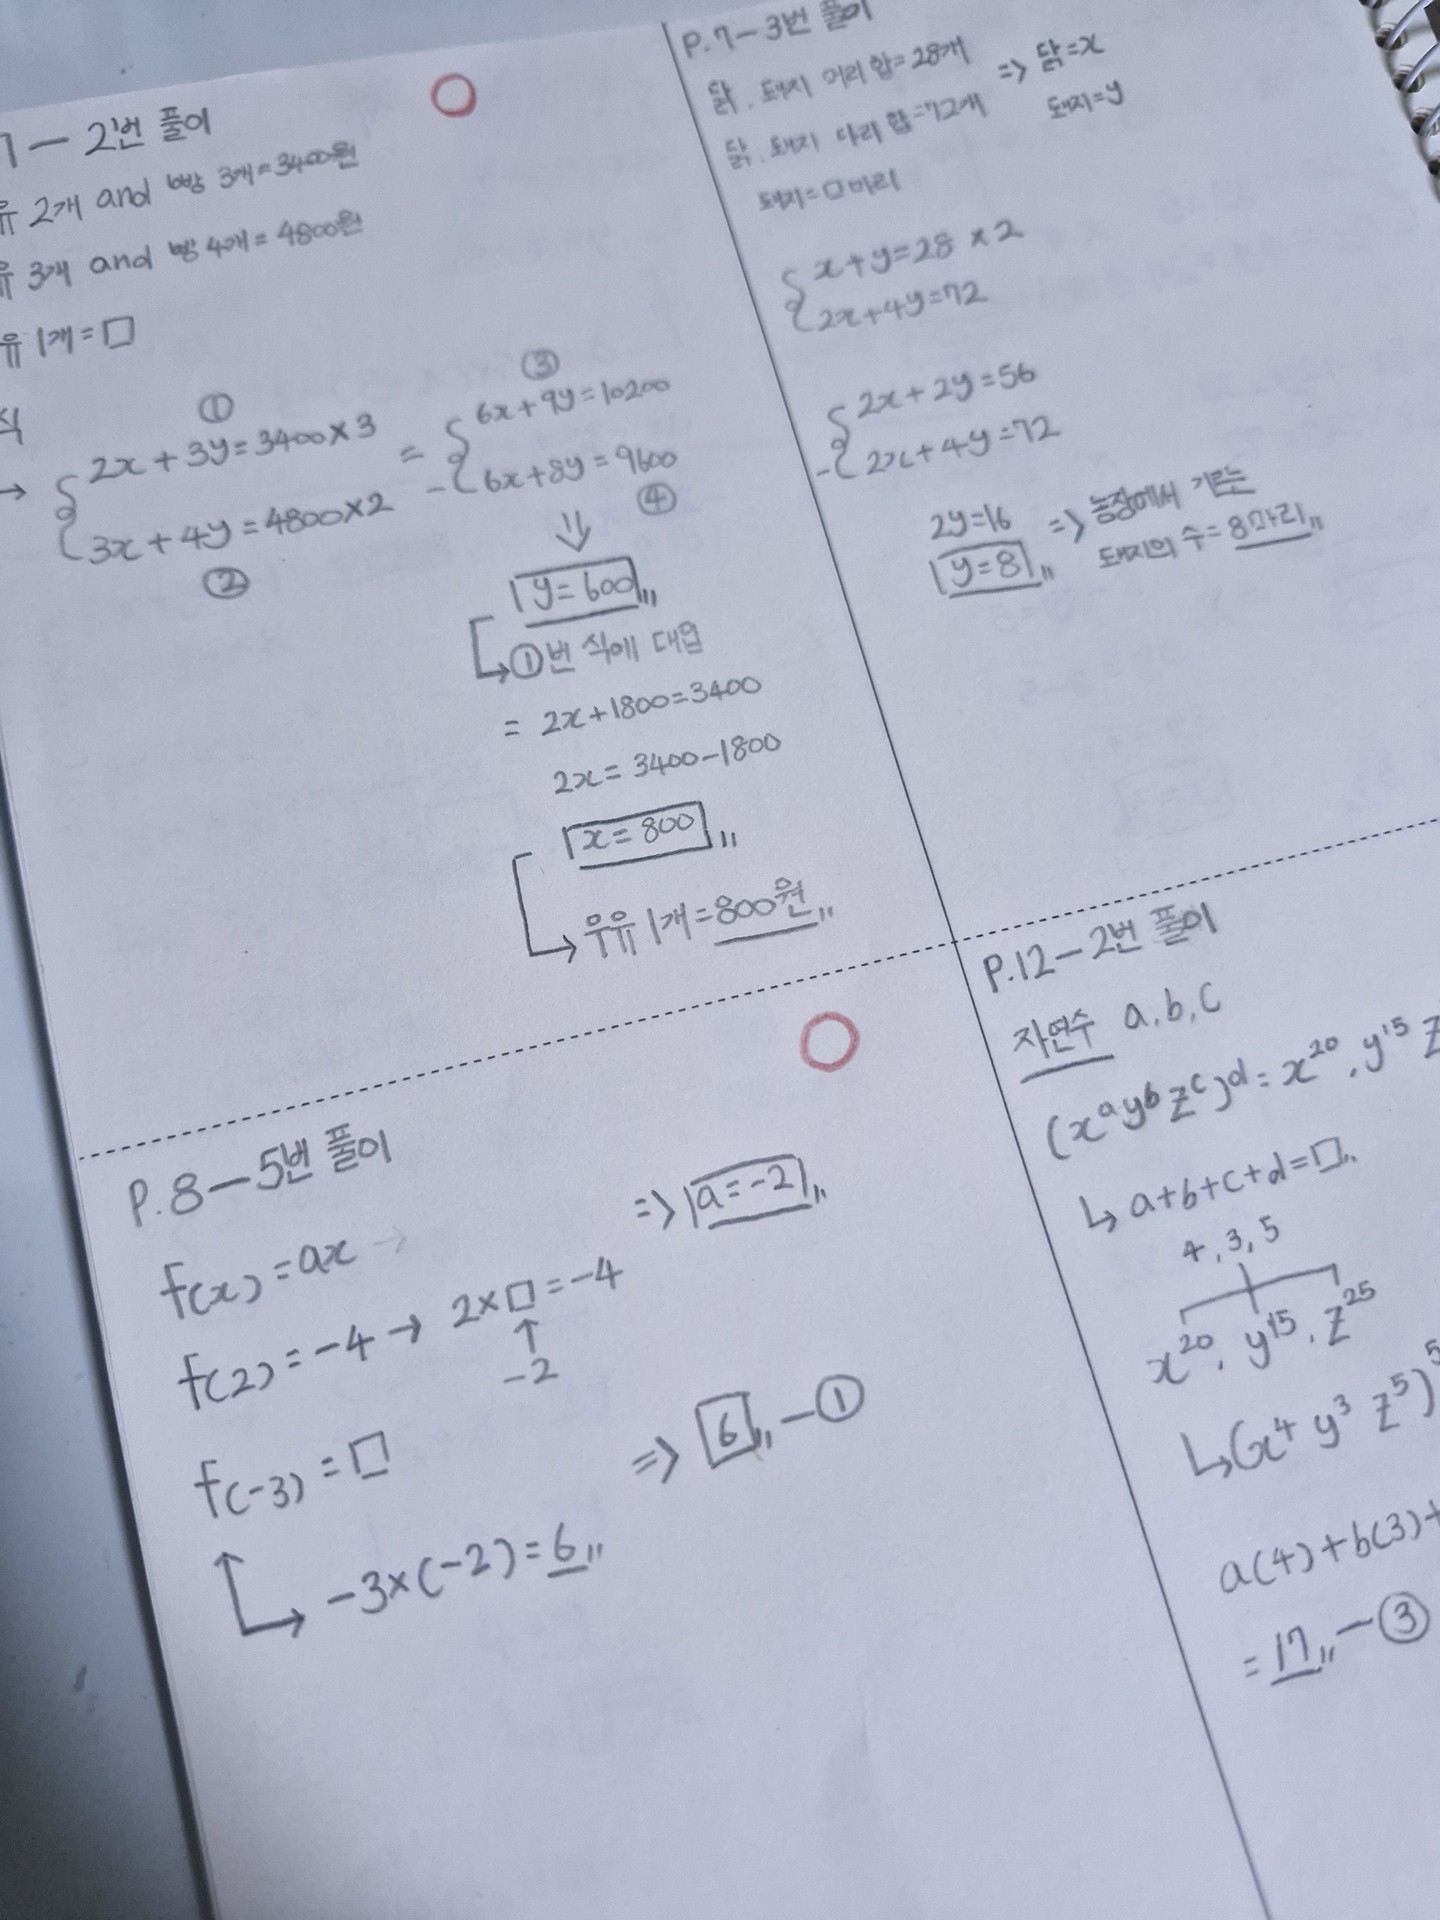 7-2번 풀이
유 2개 and 빵 3개=3400원
유 3개 and 빵 4개=4800원
유 1개=□
식
①
→ 2x+3y=3400×3
3x+4y=4800×2
②
③
= 6x+9y=10200
- 6x+8y=9600
④
⇓
y=600〃
→①번 식에 대입
= 2x+1800=3400
2x=3400-1800
x=800〃
→ 우유 1개=800원〃
P.7-3번 풀이
닭, 돼지 머리 합=28개 => 닭=x
닭, 돼지 다리 합=72개 돼지=y
돼지=□마리
x+y=28 ×2
2x+4y=72
2x+2y=56
- 2x+4y=72
2y=16 => 농장에서 기르는
y=8〃 돼지의 수=8마리〃
P.8-5번 풀이
f(x)=ax → => a=-2〃
f(2)=-4 → 2×□=-4
↑
-2
f(-3)=□ => 6〃-①
→ -3×(-2)=6〃
P.12-2번 풀이
자연수 a,b,c
(xᵃyᵇzᶜ)ᵈ=x²⁰,y¹⁵ z
↳ a+b+c+d=□〃
4,3,5
x²⁰,y¹⁵,z²⁵
↳(x⁴ y³ z⁵)⁵
a(4)+b(3)+
=17〃-③